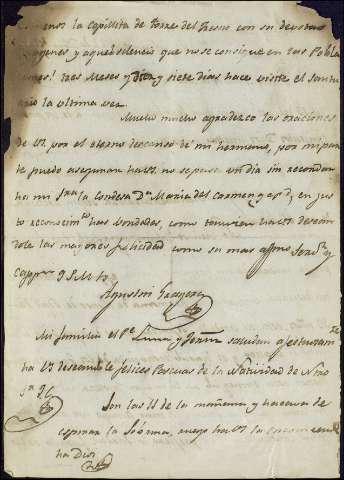 la Capillita de Torre del Fresno con su devotas
Imagenes y aquel silencio que no se consigue en las Pobla
ciones! tres Meses y diez y siete dias hace visite el Santu
ario la ultima vez.
Mucho mucho agradezco las oraciones
de U. por el eterno descanso de mi hermano, por mi par
te puedo asegurar ha U. no se pasa un dia sin recordar
ha mi Sra la Condesa Da Maria del Carmen y en jus
to reconocimto has bondades, como tambien ha U. desean
dole las mayores felicidad como su mas affmo Servr y
Cappn Q S M B
Agustin
Mi familia el Pe Luna y saludan afectuosamte
ha U. deseandole felices Pascuas de la Natividad de Ntro
Sr J.C.
Son las 11 de la mañana y hacava de
espirar la ruego ha U. la encomiende
ha Dios